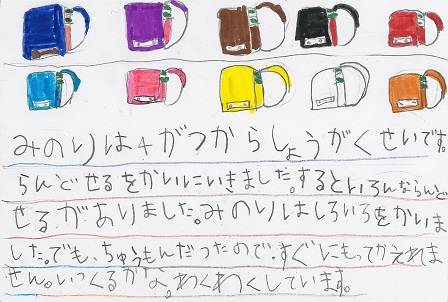 みのりは4がつからしょうがくせいです。
らんどせるをかいにいきました。するといろんならんど
せるがありました。みのりはしろいろをかいま
した。でも、ちゅうもんだったので、すぐにもってかえれま
せん。いつくるかな。わくわくしています。